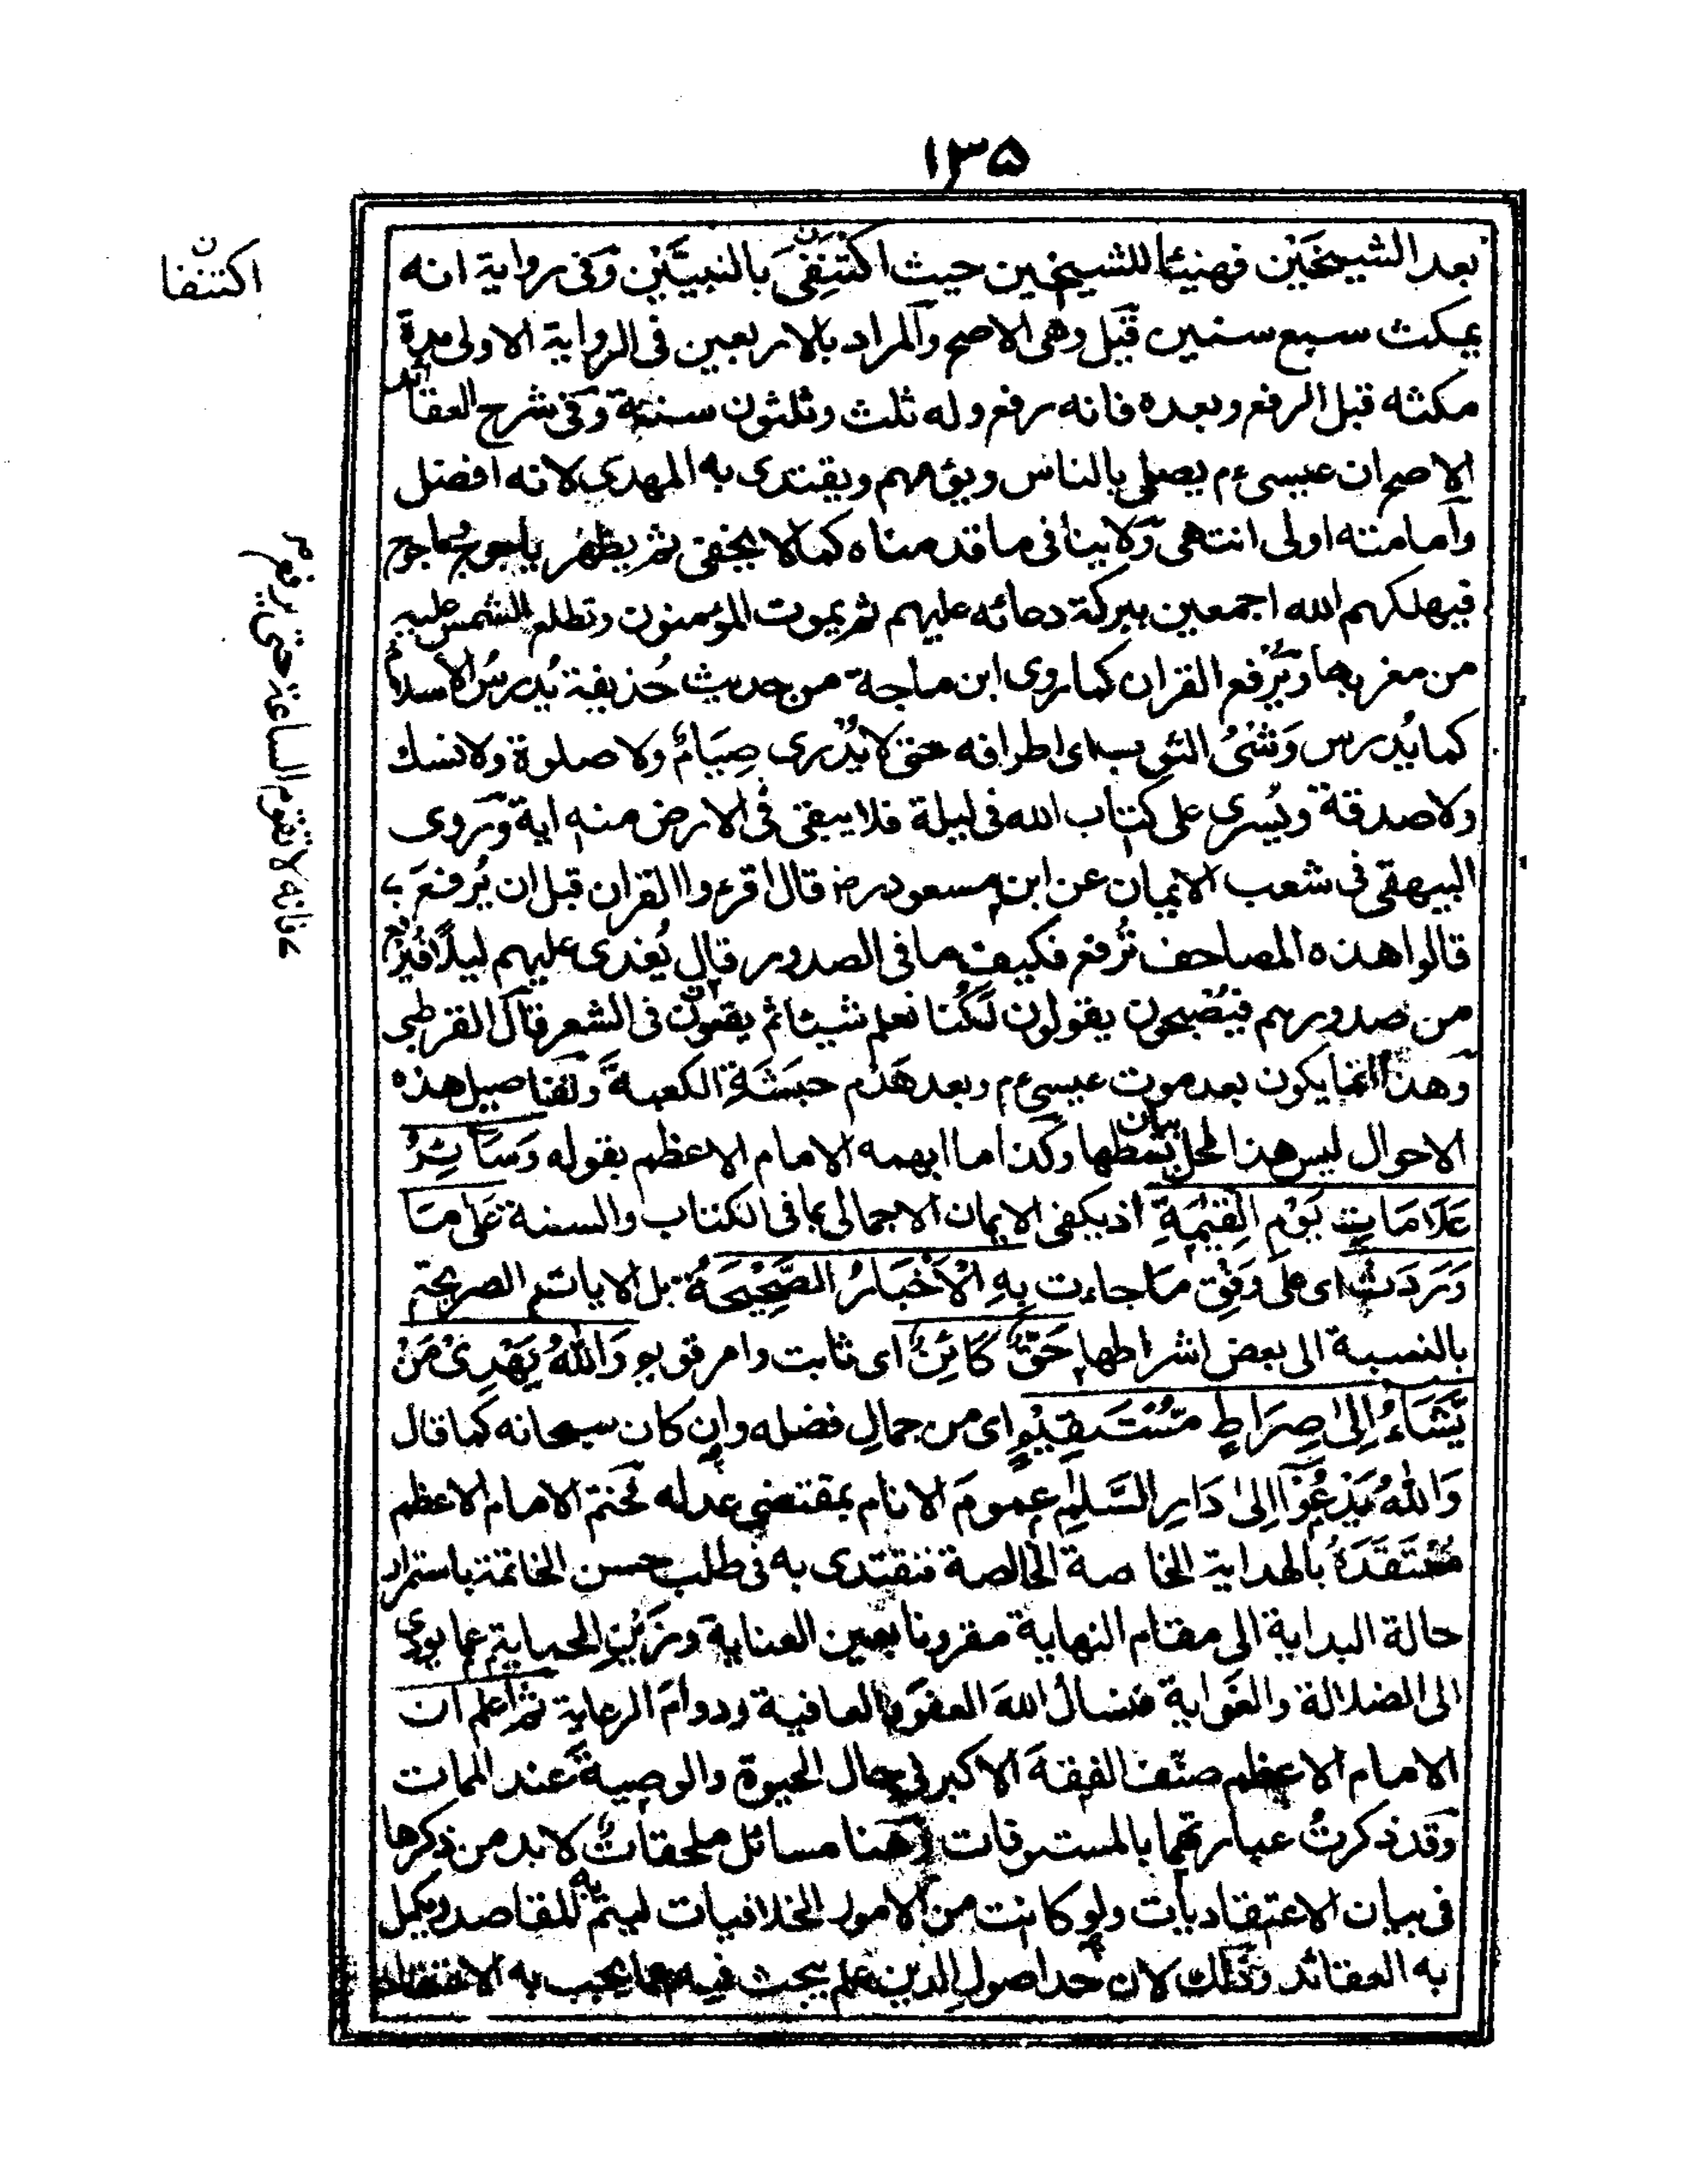 ۱۳۵
بعد الشيخَيْن فهنيئا للشيخين حيث اكتُنِفَى بالنبيَّيْن وَفى رواية انه
اكتنفا
يمكث سبع سنين قيل وهى الاصح وَالمراد بالاربعين فى الرواية الاولى مدة
مكثه قبل الرفع وبعده فانه رفع وله ثلث وثلثون سنة وَفى شرح العقائد
الاصح ان عيسىٰ ءم يصلى بالناس ويؤمهم ويقتدى به المهدى لانه افضل
وَامامته اولى انتهى وَلا ينافى ما قدمناه كما لا يخفى ثم يظهر ياجوج وماجوج
فيهلكهم الله اجمعين ببركة دعائه عليهم ثم يموت المؤمنون وتطلع الشمس عليه
من مغربها وَيُرفع القران كما روى ابن ماجة من حديث حُذيفة يُدرسُ الاسلامُ
كما يُدرس وَشْىُ الثوب اى اطرافه حتى لا يُدْرى صِيَامٌ ولا صلوة ولا نسك
ولا صدقة ويُسرى على كتاب الله فى ليلة فلا يبقى فى الارض منه اية وَروى
البيهقى فى شعب الايمان عن ابن مسعود رض قال اقرءوا القران قبل ان يُرفعَ
فانه لا تقوم الساعة حتى يرفع م
قالوا هذه المصاحف تُرفع فكيف ما فى الصدور قال يُغدى عليهم ليلًا فيُرفع
من صدورهم فيُصْبِحون يقولون لَكُنا نعلم شيئا ثم يقعون فى الشعر قال القرطبى
وَهذا انما يكون بعد موت عيسىٰ ءم وبعد هَدْم حبَشَةِ الكعبةَ وَتفاصيل هذه
الاحوال ليس هذا المحل بيان بسطها وكذا ما ابهمه الامام الاعظم بقوله وَسَائِرُ
عَلَامَاتِ يَوْمِ الْقِيٰمَةِ اذ يكفى الايمان الاجمالى بما فى الكتاب والسنة عَلٰى مَا
وَرَدَتْ اى على وَفْق مَا جاءت بِهِ الْاَخْبَارُ الصَّحِيْحَةُ بل الايات الصريحة
بالنسبة الى بعض اشراطها حَقٌّ كَائِنٌ اى ثابت وامر قوى وَاللهُ يَهْدِىْ مَنْ
يَّشَاءُ اِلىٰ صِرَاطٍ مُّسْتَقِيْمٍ اى من جمالِ فضله وان كان سبحانه كما قال
وَاللهُ يَدْعُوْا اِلىٰ دَارِ السَّلٰمِ عمومَ الانام بمقتضى عدله فَختم الامام الاعظم
مُعْتَقَدَهُ بالهداية الخاصة الخالصة فنقتدى به فى طلب حسن الخاتمة باستمرار
حالة البداية الى مقام النهاية مقرونا بعين العناية وزَيْنِ الحماية عما يودى
الى الضلالة والغَواية فنسالُ اللهَ العفوَ والعافية ودوامَ الرعاية ثم اعلم ان
الامام الاعظم صنّف الفقهَ الاكبر فى حال الحيوة والوصيةَ عند الممات
وَقد ذكرتُ عبارتهما بالمستوفات وَهنا مسائل ملحقاتٌ لا بد من ذكرها
فى بيان الاعتقاديات ولو كانت من الامور الخلافيات ليتم به المقاصد ويكمل
به العقائد وَذلك لان حد اصولِ الدين علم يبحث فيه عما يجب به الاعتقاد